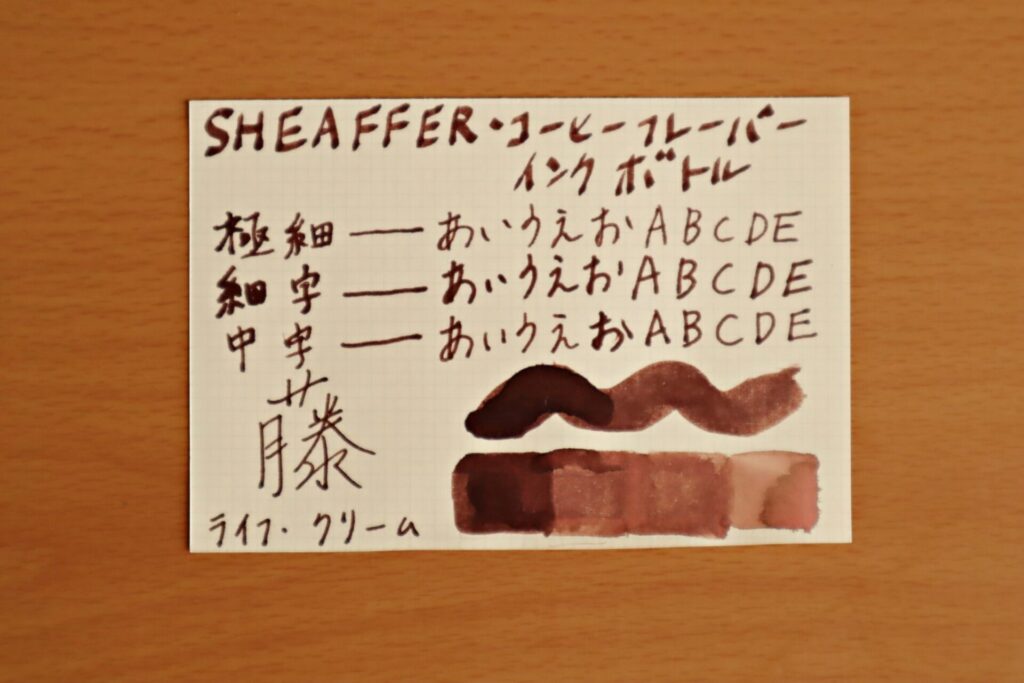 SHEAFFER・コーヒーフレーバー
インクボトル
極細 ― あいうえおABCDE
細字 ― あいうえおABCDE
中字 ― あいうえおABCDE
藤
ライフ・クリーム